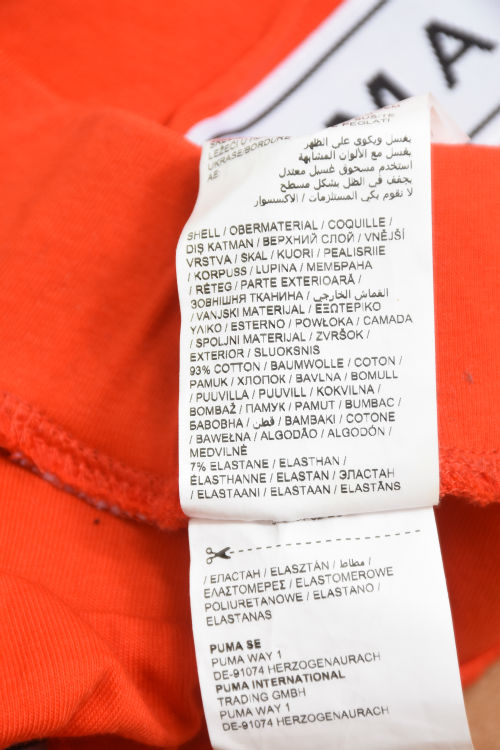 MA
PEGLATI
LEŽEĆI U H
UKRASE/BORDURE
AE:
يغسل ويكوى على الظهر
يغسل مع الألوان المشابهة
استخدم مسحوق غسيل معتدل
يجفف في الظل بشكل مسطح
لا تقوم بكي المستلزمات / الاكسسوار
SHELL / OBERMATERIAL / COQUILLE /
DIŞ KATMAN / ВЕРХНИЙ СЛОЙ / VNĚJŠÍ
VRSTVA / SKAL / KUORI / PEALISRIIE
/ KORPUSS / LUPINA / МЕМБРАНА
/ RÉTEG / PARTE EXTERIOARĂ /
ЗОВНІШНЯ ТКАНИНА / القماش الخارجي
/ VANJSKI MATERIJAL / ΕΞΩΤΕΡΙΚΟ
ΥΛΙΚΟ / ESTERNO / POWŁOKA / CAMADA
/ SPOLJNI MATERIJAL / ZVRŠOK /
EXTERIOR / SLUOKSNIS
93% COTTON / BAUMWOLLE / COTON /
PAMUK / ХЛОПОК / BAVLNA / BOMULL
/ PUUVILLA / PUUVILL / KOKVILNA /
BOMBAŽ / ПАМУК / PAMUT / BUMBAC /
БАВОВНА / قطن / ΒΑΜΒΑΚΙ / COTONE
/ BAWEŁNA / ALGODÃO / ALGODÓN /
MEDVILNĖ
7% ELASTANE / ELASTHAN /
ÉLASTHANNE / ELASTAN / ЭЛАСТАН
/ ELASTAANI / ELASTAAN / ELASTĀNS
/ ЕЛАСТАН / ELASZTÁN / مطاط /
ΕΛΑΣΤΟΜΕΡΕΣ / ELASTOMEROWE
POLIURETANOWE / ELASTANO /
ELASTANAS
PUMA SE
PUMA WAY 1
DE-91074 HERZOGENAURACH
PUMA INTERNATIONAL
TRADING GMBH
PUMA WAY 1
DE-91074 HERZOGENAURACH